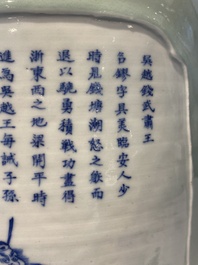 吳越錢武肅王
名鏐字具美臨安人少
時居錢塘湖怒之眾而
退以驍勇積戰功盡得
浙東西之地梁開平時
進為吳越王每誡子孫